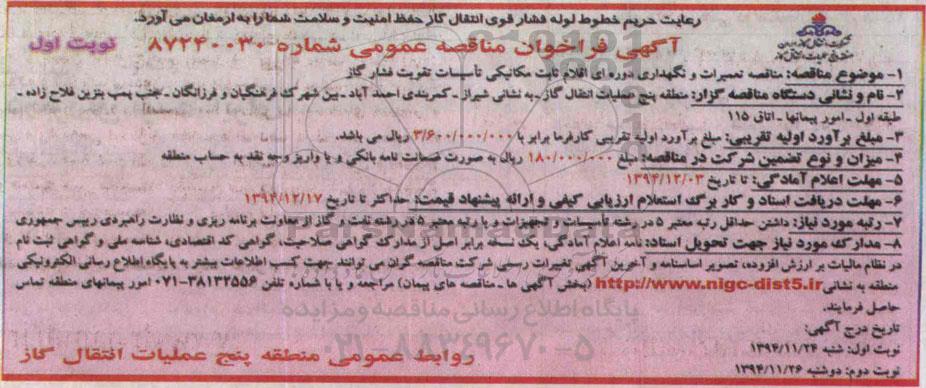 رعایت حریم خطوط لوله فشار قوی انتقال گاز حفظ امنیت و سلامت شما را به ارمغان می آورد.
آگهی فراخوان مناقصه عمومی شماره ۸۷۲۴۰۰۳۰
نوبت اول
۱- موضوع مناقصه: مناقصه تعمیرات و نگهداری دوره ای اقلام ثابت مکانیکی تأسیسات تقویت فشار گاز
۲- نام و نشانی دستگاه مناقصه گزار: منطقه پنج عملیات انتقال گاز - به نشانی شیراز - کمربندی احمد آباد - بین شهرک فرهنگیان و فرزانگان - جنب پمپ بنزین فلاح زاده -
طبقه اول - امور پیمانها - اتاق ۱۱۵
۳- مبلغ برآورد اولیه تقریبی: مبلغ برآورد اولیه تقریبی کارفرما برابر با ۳/۶۰۰/۰۰۰/۰۰۰ ریال می باشد.
۴- میزان و نوع تضمین شرکت در مناقصه: مبلغ ۱۸۰/۰۰۰/۰۰۰ ریال به صورت ضمانت نامه بانکی و یا واریز وجه نقد به حساب منطقه
۵- مهلت اعلام آمادگی: تا تاریخ ۱۳۹۴/۱۲/۰۳
۶- مهلت دریافت اسناد و کار برگ استعلام ارزیابی کیفی و ارائه پیشنهاد قیمت: حداکثر تا تاریخ ۱۳۹۴/۱۲/۱۷
۷- رتبه مورد نیاز: داشتن حداقل رتبه معتبر ۵ در رشته تأسیسات و تجهیزات و یا رتبه معتبر ۵ در رشته نفت و گاز از معاونت برنامه ریزی و نظارت راهبردی رییس جمهوری
۸- مدارک مورد نیاز جهت تحویل اسناد: نامه اعلام آمادگی، یک نسخه برابر اصل از مدارک گواهی صلاحیت، گواهی کد اقتصادی، شناسه ملی و گواهی ثبت نام
در نظام مالیات بر ارزش افزوده، تصویر اساسنامه و آخرین آگهی تغییرات رسمی شرکت مناقصه گران می توانند جهت کسب اطلاعات بیشتر به پایگاه اطلاع رسانی الکترونیکی
منطقه به نشانی http://www.nigc-dist5.ir (بخش آگهی ها - مناقصه های پیمان) مراجعه و یا با شماره تلفن ۳۸۱۳۲۵۵۶-۰۷۱ امور پیمانهای منطقه تماس
حاصل فرمایند.
تاریخ درج آگهی:
نوبت اول: شنبه ۱۳۹۴/۱۱/۲۴
نوبت دوم: دوشنبه ۱۳۹۴/۱۱/۲۶
روابط عمومی منطقه پنج عملیات انتقال گاز
ParsNamadData
پایگاه اطلاع رسانی مناقصه و مزایده
۰۲۱-۸۸۳۴۹۶۷۰-۵